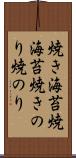 焼き海苔焼
海苔焼きの
り焼のり